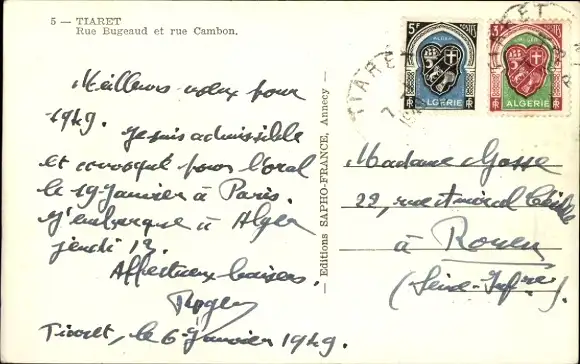 5 — TIARET
Rue Bugeaud et rue Cambon.
Meilleurs vœux pour
1949.
Je suis admissible
et convoqué pour l'oral
le 19 Janvier à Paris.
J'embarque à Alger
jeudi 13.
Affectueux baisers.
Roger
Tiaret, le 6 Janvier 1949.
— Editions SAPHO-FRANCE, Annecy —
TIARET
TIARET
5F
ALGERIE
RF
RF
3F
ALGERIE
RF
RF
Madame Gosse
22, rue Amiral
à Rouen
(Seine-Infre)